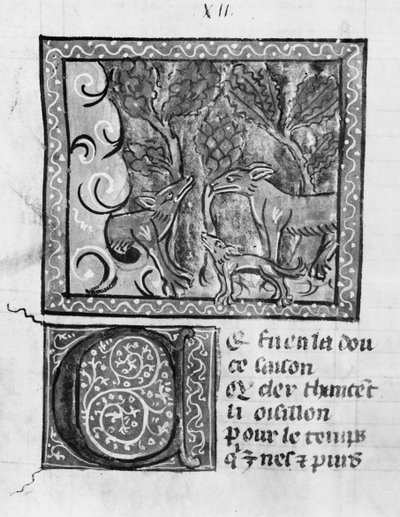 XII.
CE fu en la dou
ce saison
Q cler chantēt
li oisillon
Pour le temps
q̃ nes ⁊ purs